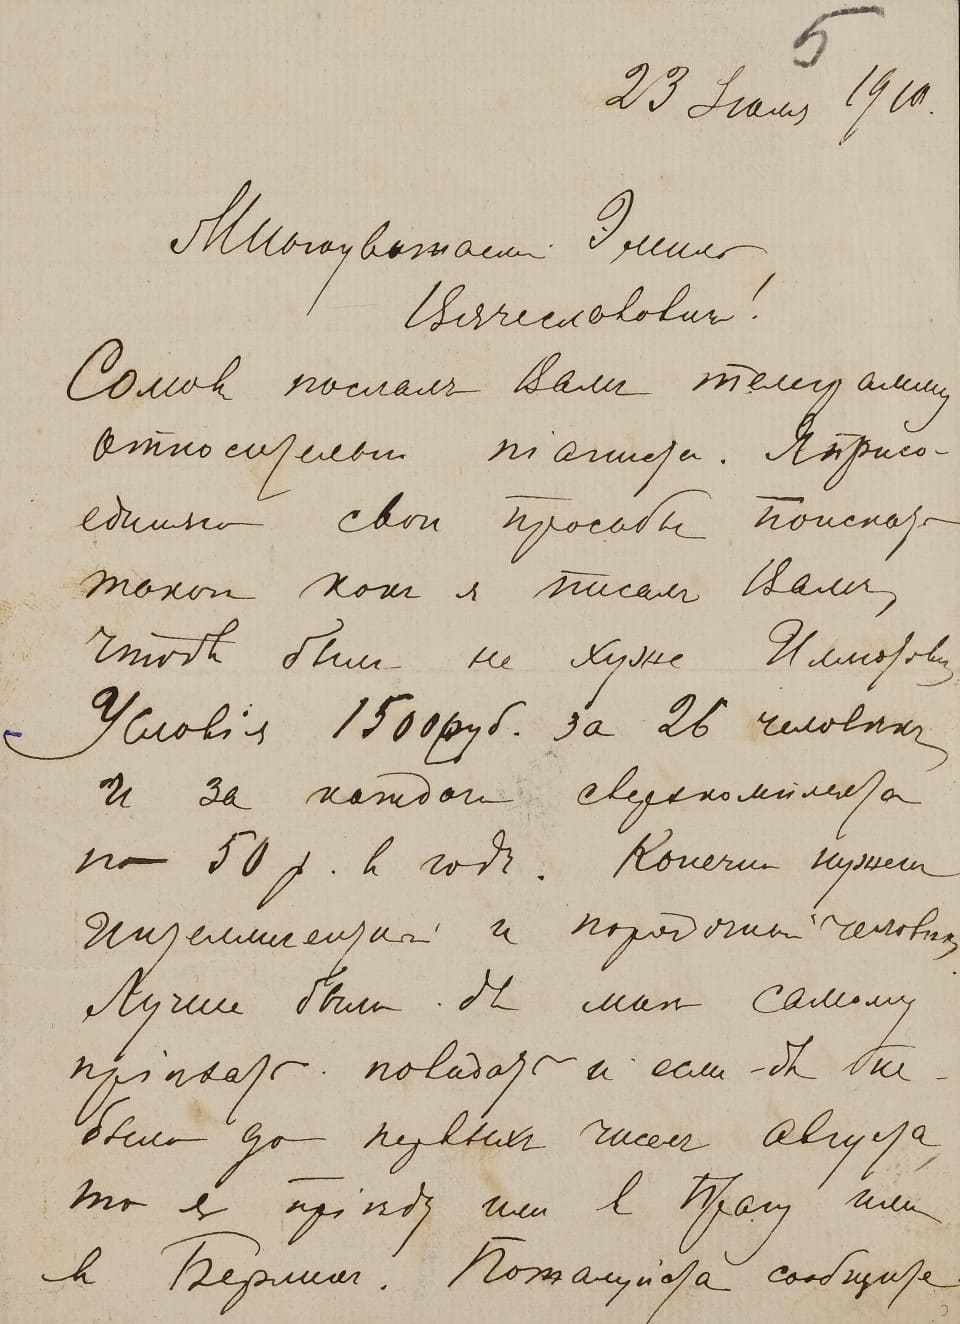 5
23 Іюля 1910.
Многоуважаемый Эмиль
Вячеславович!
Сомов послалъ Вамъ телеграмму
относительно піаниста. Я присо-
единяю свои просьбы поискать
такой какъ я писалъ Вамъ,
чтобъ былъ не хуже
Условія 1500 руб. за 26 человѣкъ,
и за каждого сверхкомплекта
по 50 р. в годъ. Конечно нужен
интеллигентный и порядочный человѣкъ,
Лучше было бъ мнѣ самому
пріѣхать повидать и если-бъ это
было до первыхъ чиселъ августа,
то я пріѣду или в Прагу или
в Берлинъ. Пожалуйста сообщите